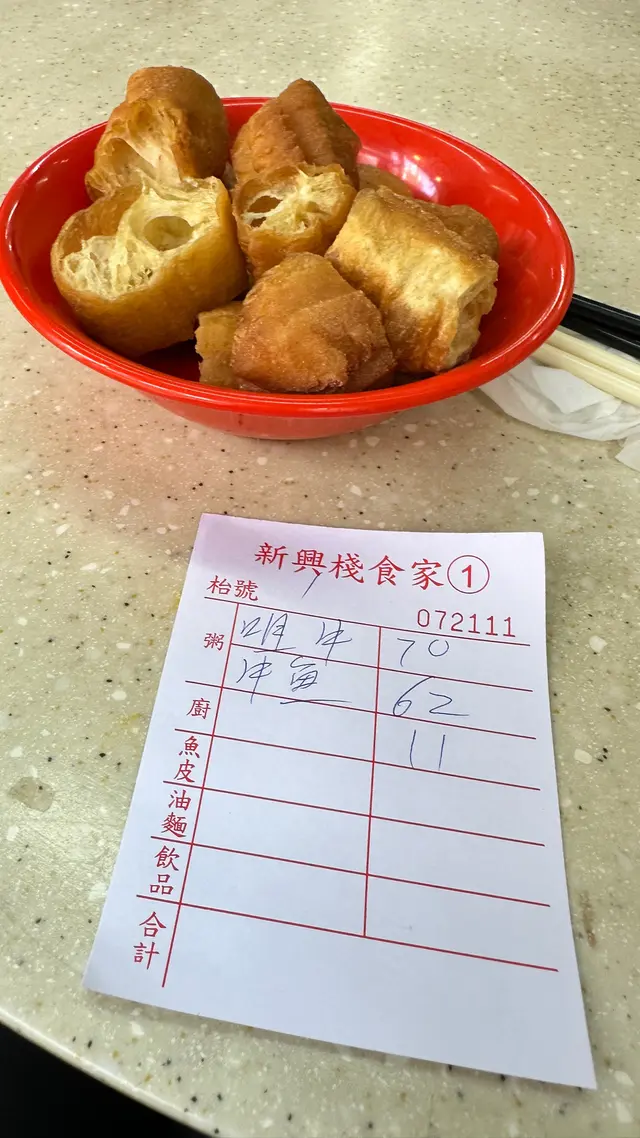 新興棧食家①
枱號
072111
粥 70
牛 62
廚 11
魚皮
油麵
飲品
合計